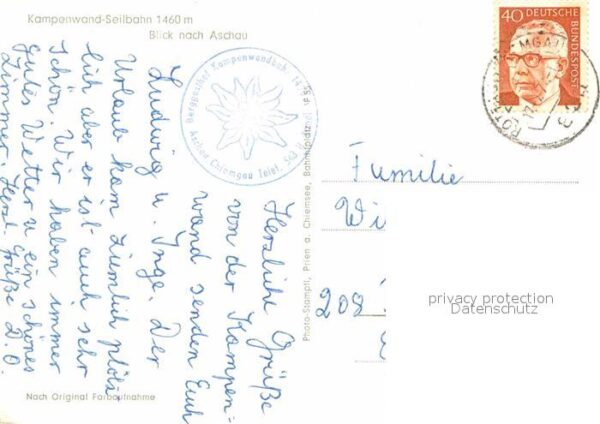 Kampenwand-Seilbahn 1460 m
Blick nach Aschau
Herzliche Grüße
von der Kampen=
wand senden Euch
Ludwig u. Inge. Der
Urlaub kam ziemlich plötz-
lich aber er ist auch sehr
schön. Wir haben immer
gutes Wetter u ein schönes
Zimmer. Herzl. Grüße D.O.
Nach Original Farbaufnahme
Berggasthof Kampenwandbahn
Aschau Chiemgau Telef.
Photo-Stampfl, Prien a. Chiemsee, Bahnhofplatz
40 DEUTSCHE
BUNDESPOST
Familie
Wi
208
privacy protection
Datenschutz